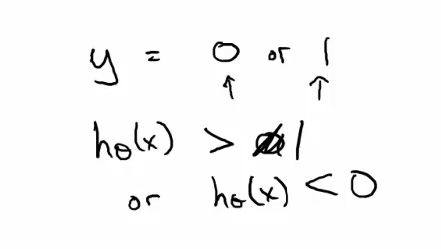 y = 0 or 1
↑ ↑
hθ(x) > 1
or hθ(x) < 0